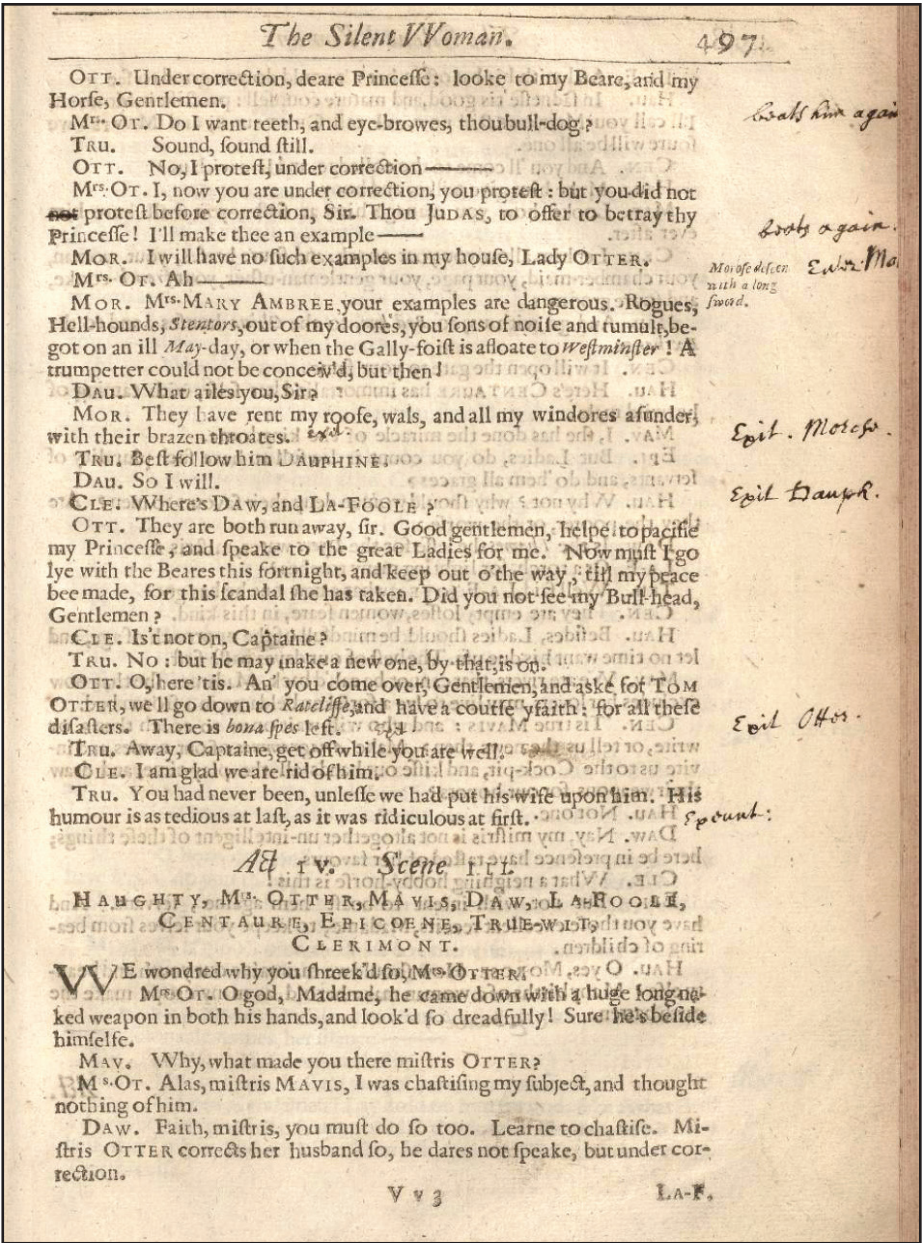 The Silent VVoman. 497
OTT. Under correction, deare Princesse: looke to my Beare, and my
Horse, Gentlemen.
Mrs. OT. Do I want teeth, and eye-browes, thou bull-dog?
beats him again
TRU. Sound, sound still.
OTT. No, I protest, under correction——
Mrs. OT. I, now you are under correction, you protest: but you did not
not protest before correction, Sir. Thou JUDAS, to offer to betray thy
Princesse! I'll make thee an example——
beats again.
MOR. I will have no such examples in my house, Lady OTTER.
Morose descen
with a long
sword.
Enter Mo
Mrs. OT. Ah——
MOR. Mrs. MARY AMBREE, your examples are dangerous. Rogues,
Hell-hounds, Stentors, out of my doores, you sons of noise and tumult, be-
got on an ill May-day, or when the Gally-foist is afloate to Westminster! A
trumpetter could not be conceiv'd, but then!
DAU. What ailes you, Sir?
MOR. They have rent my roofe, wals, and all my windores asunder,
with their brazen throates. exit.
Exit. Morose.
TRU. Best follow him DAUPHINE.
DAU. So I will.
Exit Dauph.
CLE. Where's DAW, and LA-FOOLE?
OTT. They are both run away, sir. Good gentlemen, helpe to pacifie
my Princesse, and speake to the great Ladies for me. Now must I go
lye with the Beares this fortnight, and keep out o'the way, till my peace
bee made, for this scandal she has taken. Did you not see my Bull-head,
Gentlemen?
CLE. Is't not on, Captaine?
TRU. No: but he may make a new one, by that, is on.
OTT. O, here 'tis. An' you come over, Gentlemen, and aske for TOM
OTTER, we'll go down to Ratcliffe, and have a course yfaith: for all these
disasters. There is bona spes left.
Exit Otter.
TRU. Away, Captaine, get off while you are well.
CLE. I am glad we are rid of him.
TRU. You had never been, unlesse we had put his wife upon him. His
humour is as tedious at last, as it was ridiculous at first. Exeunt:
Act IV. Scene III.
HAUGHTY, Ms. OTTER, MAVIS, DAW, LA-FOOLE,
CENTAURE, EPICOENE, TRUE-WIT,
CLERIMONT.
WE wondred why you shreek'd so, Mrs. OTTER.
Mrs. OT. O god, Madame, he came down with a huge long na-
ked weapon in both his hands, and look'd so dreadfully! Sure he's beside
himselfe.
MAV. Why, what made you there mistris OTTER?
Ms. OT. Alas, mistris MAVIS, I was chastising my subject, and thought
nothing of him.
DAW. Faith, mistris, you must do so too. Learne to chastise. Mi-
stris OTTER corrects her husband so, he dares not speake, but under cor-
rection.
V v 3 LA-F.